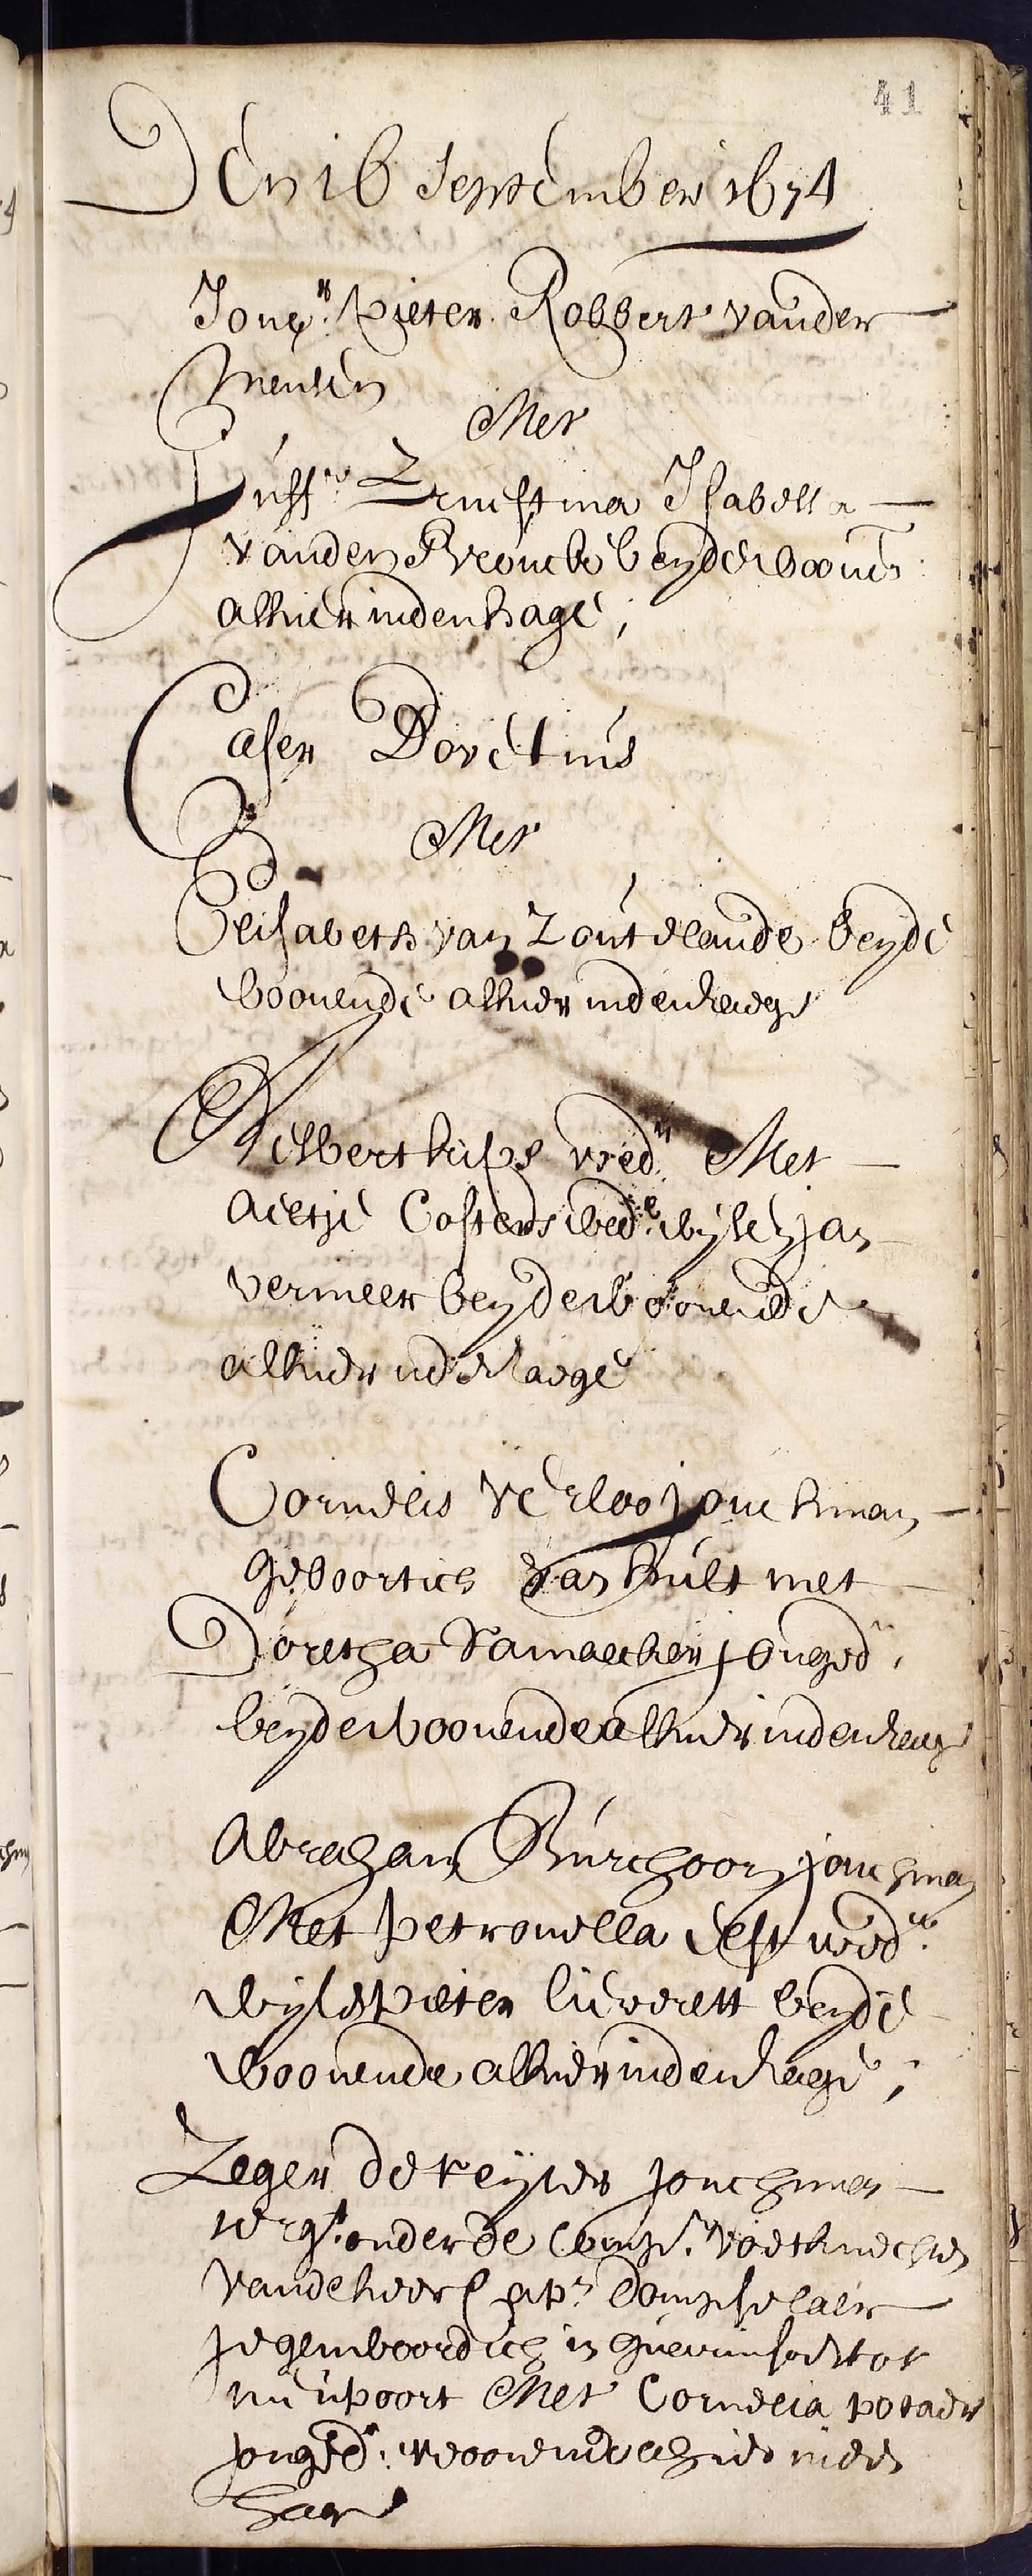 41
Den 16 September 1674
Joncr. Pieter Robbert vander
Meulen
Met
Juffr. Ernestina Isabella
vanden Brouche beyde woone
alhier inden hage,
Casper Dovetius
Met
Elisabeth van Zoutelande beyde
woonende alhier inden hage
Gijsbert kips wedr. Met
Aeltje Costers wede. wijlen Jan
vermeer beyde woonende
alhier inden Hage
Cornelis Verloo jonckman
geboortich van hulst met
Doretha Ramaecker jonged.
beyde woonende alhier inden hage
Abraham Burchoorn jonchman
Met Petronella delft wede.
wijle Pieter lieverett beyde
woonende alhier inden hage,
Zeger de keyser jonchman
sergt. onder de Comp. voetknechten
vande heer Capn. Dompselaer
jegenwoordich in guarnisoen tot
nieupoort Met Cornelia potaer
jonged. woonende alhier inden
hage